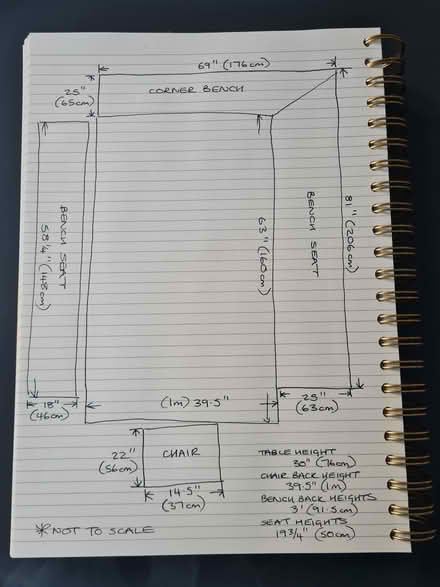 69" (176cm)
25"
(65cm)
CORNER BENCH
BENCH SEAT
58¼" (148cm)
63" (160cm)
BENCH SEAT
81" (206cm)
18"
(46cm)
(1m) 39.5"
25"
(63cm)
22"
(56cm)
CHAIR
14.5"
(37cm)
TABLE HEIGHT
30" (76cm)
CHAIR BACK HEIGHT
39.5" (1m)
BENCH BACK HEIGHTS
3' (91.5cm)
SEAT HEIGHTS
19¾" (50cm)
*NOT TO SCALE